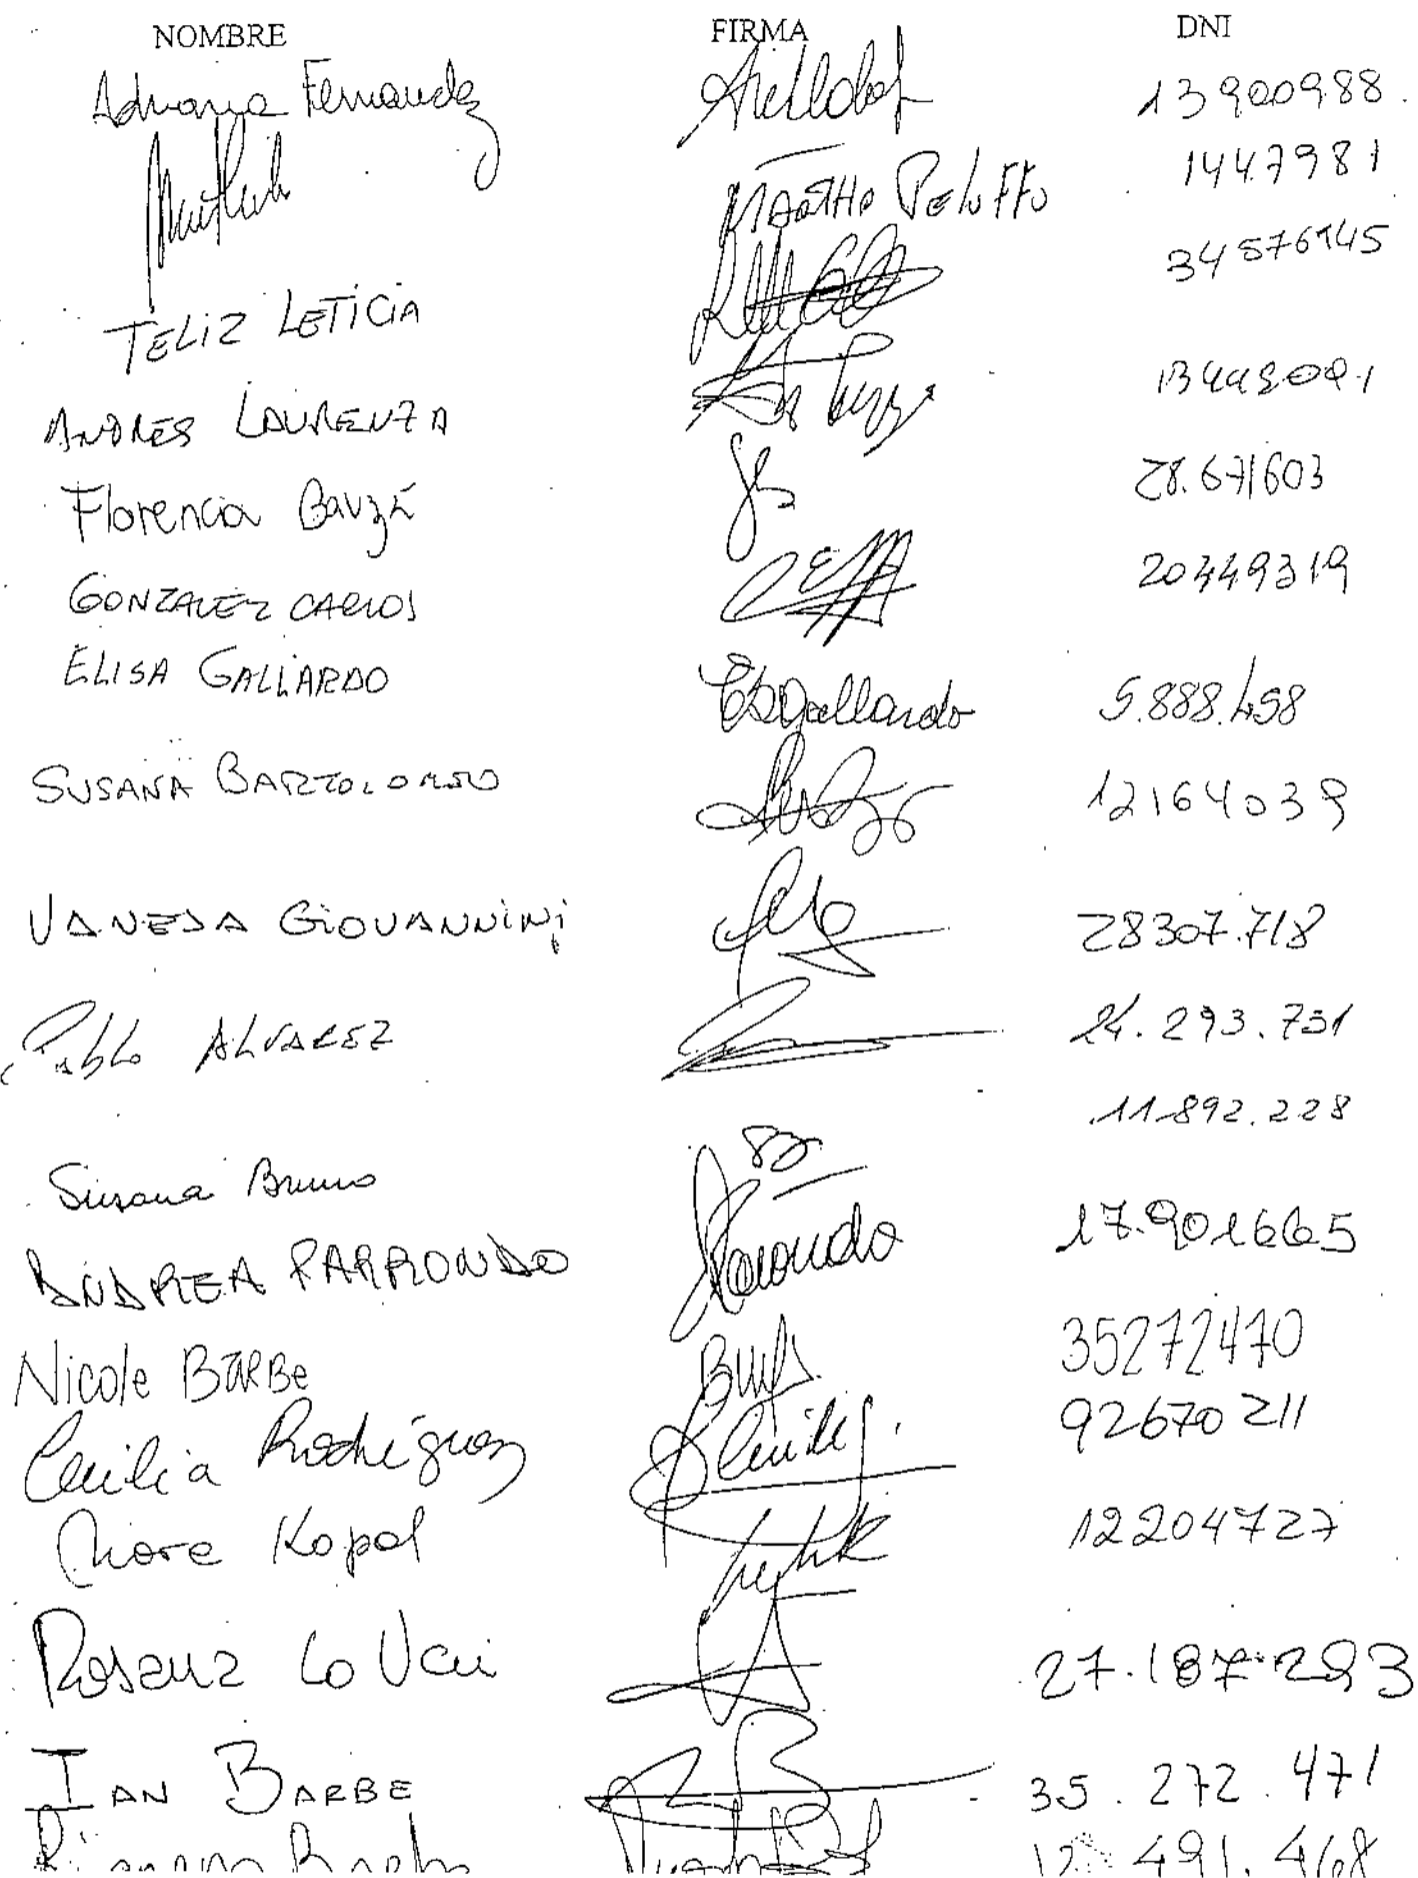 NOMBRE FIRMA DNI
Adriana Fernandez 13900988.
MARTHA PELUFFO 1447981
TELIZ LETICIA 34576145
ANDRES LAURENZA
Florencia Bauzá 28.671603
GONZALEZ CARLOS 20449319
ELISA GALLARDO EGallardo 5.888.458
SUSANA BARTOLOMEO 12164039
VANESA GIOVANNINI 28307.718
Pablo ALVAREZ 24.293.731
Susana Bruno 11892.228
ANDREA PARRONDO Parrondo 17.901665
Nicole BARBE 35272470
Cecilia Rodríguez 92670211
Kopal 12204727
27.187.293
IAN BARBE 35.272.471
491.468